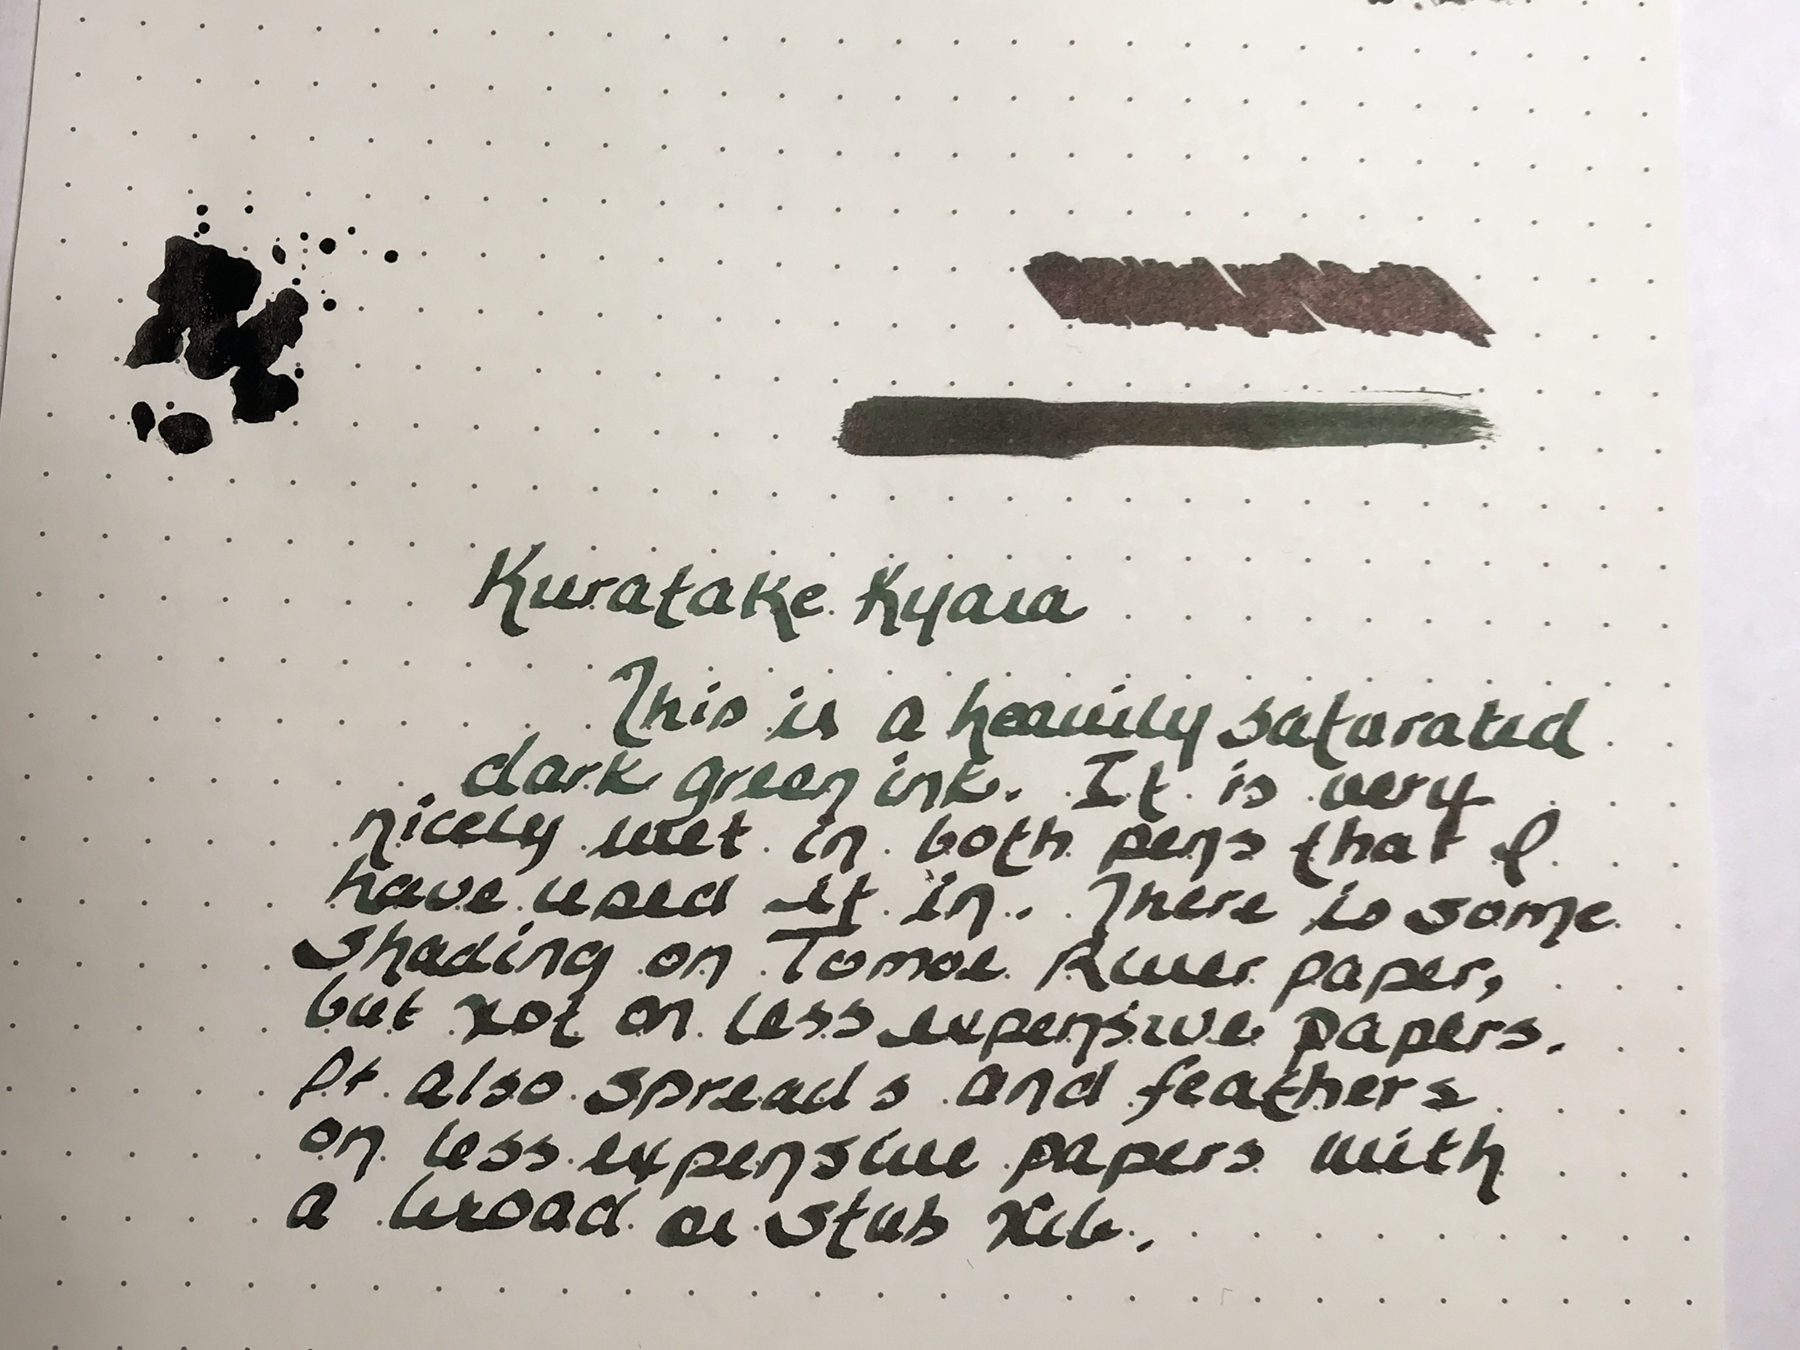 Kuratake Kyara
This is a heavily saturated
dark green ink. It is very
nicely wet in both pens that I
have used it in. There is some
shading on Tomoe River paper,
but not on less expensive papers.
It also spreads and feathers
on less expensive papers with
a broad or stub nib.